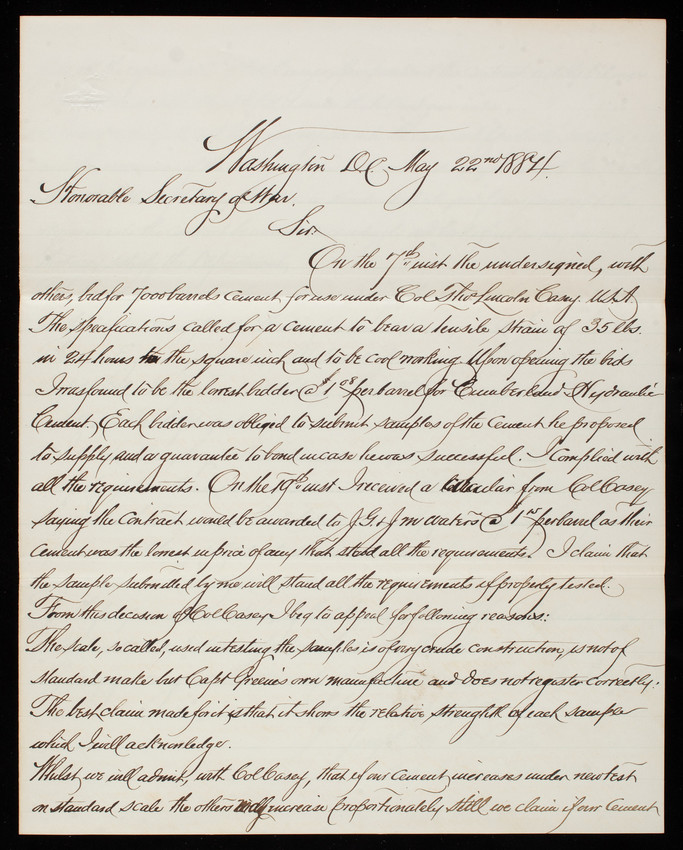 Washington D.C. May 22nd 1884.
Honorable Secretary of War.
Sir:
On the 7th inst the undersigned, with
others, bid for 7000 barrels cement for use under Col Thos Lincoln Casey. U.S.A.
The specifications called for a cement to bear a tensile strain of 35 lbs.
in 24 hours to the square inch and to be cool working. Upon opening the bids
I was found to be the lowest bidder @ $1 08 per barrel for Cumberland Hydraulic
Cement. Each bidder was obliged to submit samples of the cement he proposed
to supply and a guarantee to bond in case he was successful. I complied with
all the requirements. On the 19th inst I received a circular from Col Casey
saying the contract would be awarded to J.G. & J M Waters @ 1 per barrel as their
cement was the lowest in price of any that stood all the requirements. I claim that
the sample submitted by me will stand all the requirements if properly tested.
From this decision of Col Casey I beg to appeal for following reasons:
The scale, so called, used in testing the samples is of very crude construction, is not of
standard make but Capt Greene's own manufacture and does not register correctly.
The best claim made for it is that it shows the relative strength of each sample
which I will acknowledge.
Whilst we will admit, with Col Casey, that if our cement increases under new test
on standard scale the others will increase proportionately still we claim if our cement